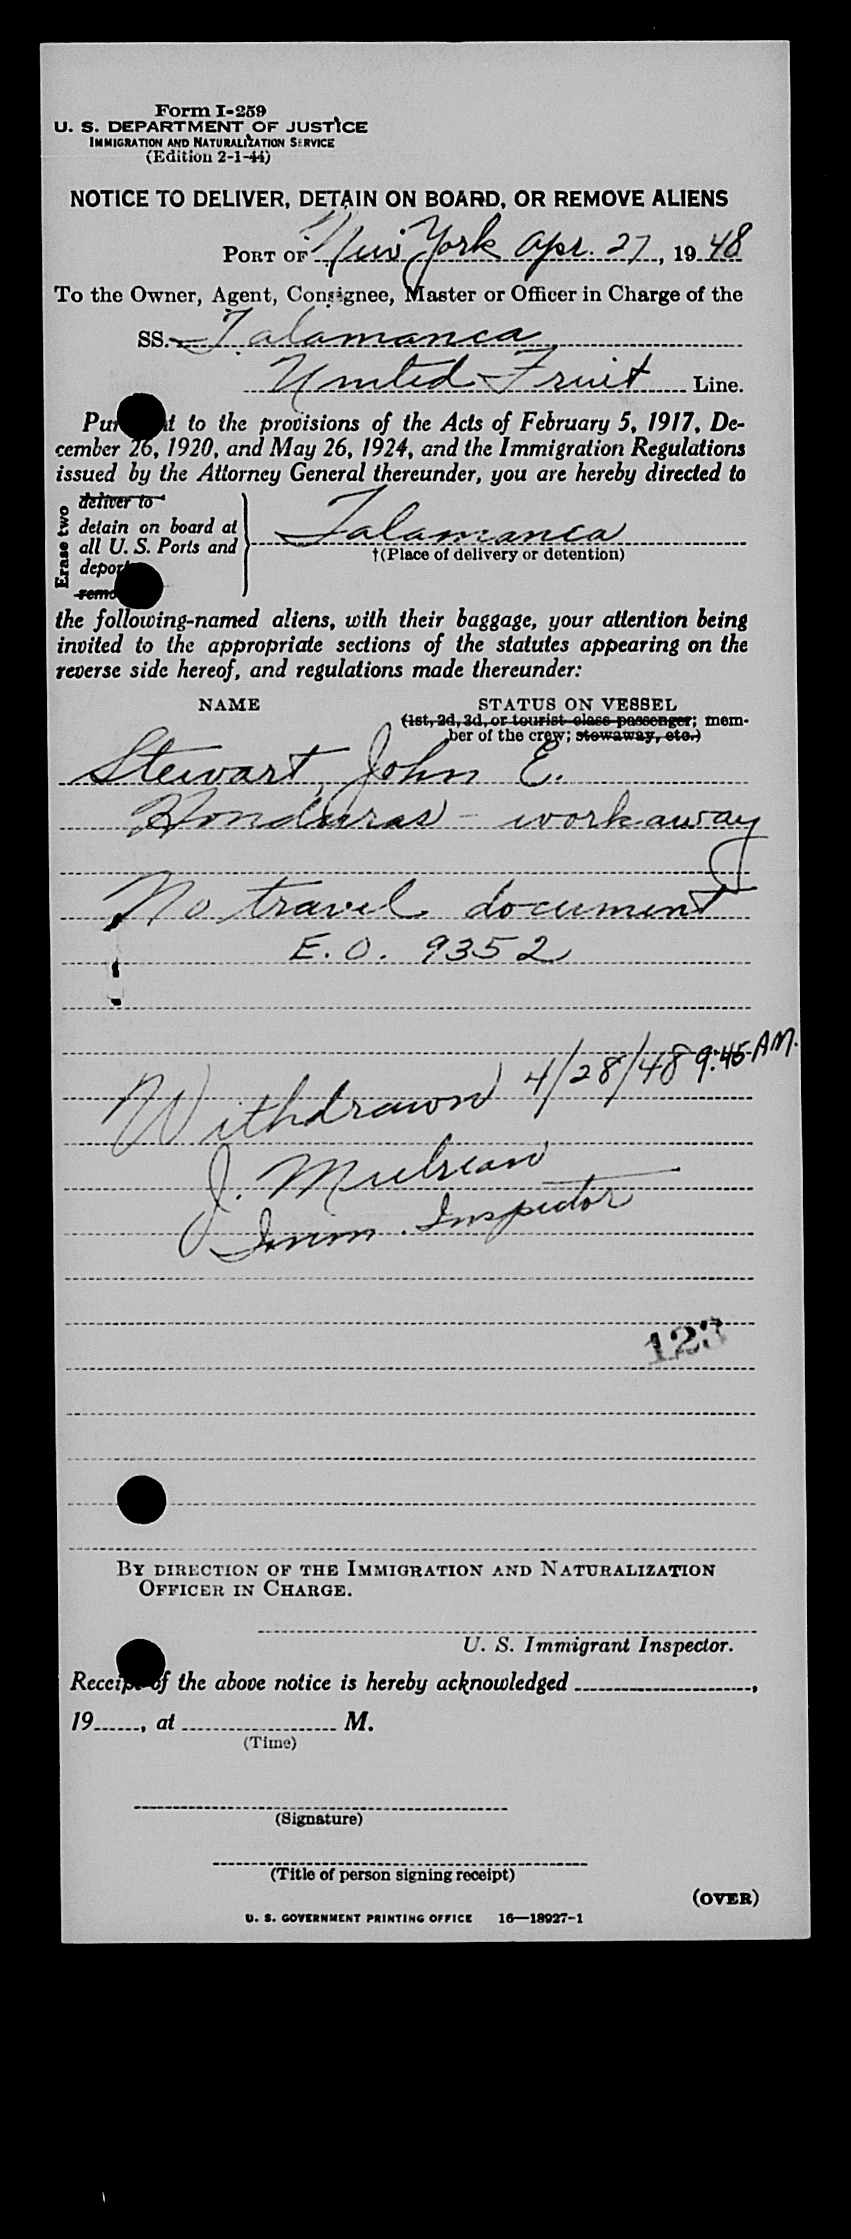 Form I-259
U. S. DEPARTMENT OF JUSTICE
IMMIGRATION AND NATURALIZATION SERVICE
(Edition 2-1-44)
NOTICE TO DELIVER, DETAIN ON BOARD, OR REMOVE ALIENS
PORT OF New York Apr. 27, 1948
To the Owner, Agent, Consignee, Master or Officer in Charge of the
SS. Talamanca
United Fruit Line.
Pur t to the provisions of the Acts of February 5, 1917, De-
cember 26, 1920, and May 26, 1924, and the Immigration Regulations
issued by the Attorney General thereunder, you are hereby directed to
Erase two
deliver to
detain on board at
all U. S. Ports and
depor
remo
Talamanca
†(Place of delivery or detention)
the following-named aliens, with their baggage, your attention being
invited to the appropriate sections of the statutes appearing on the
reverse side hereof, and regulations made thereunder:
NAME STATUS ON VESSEL
(1st, 2d, 3d, or tourist class passenger; mem-
ber of the crew; stowaway, etc.)
Stewart, John E.
Honduras - workaway
No travel document
E. O. 9352
Withdrawn 4/28/48 9:45 AM.
J.
Imm. Inspector
123
BY DIRECTION OF THE IMMIGRATION AND NATURALIZATION
OFFICER IN CHARGE.
U. S. Immigrant Inspector.
Receipt of the above notice is hereby acknowledged ,
19 , at M.
(Time)
(Signature)
(Title of person signing receipt)
(OVER)
U. S. GOVERNMENT PRINTING OFFICE 16—18927-1